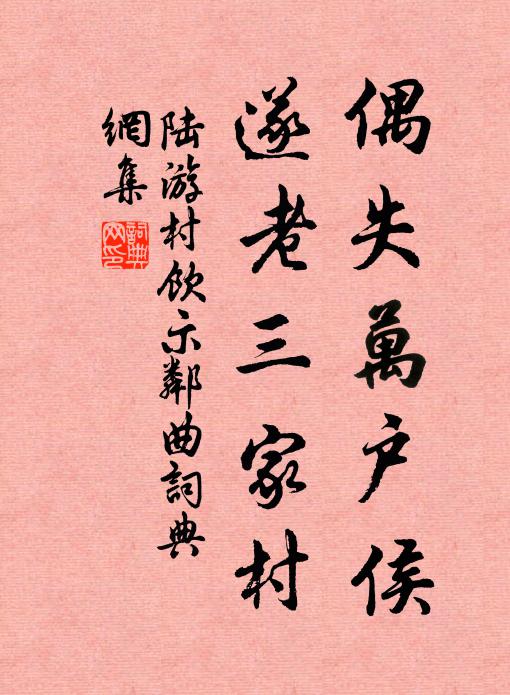 偶失萬户侯
遂老三家村
陆游村飲示鄰曲詞典
網集
詞典
网印